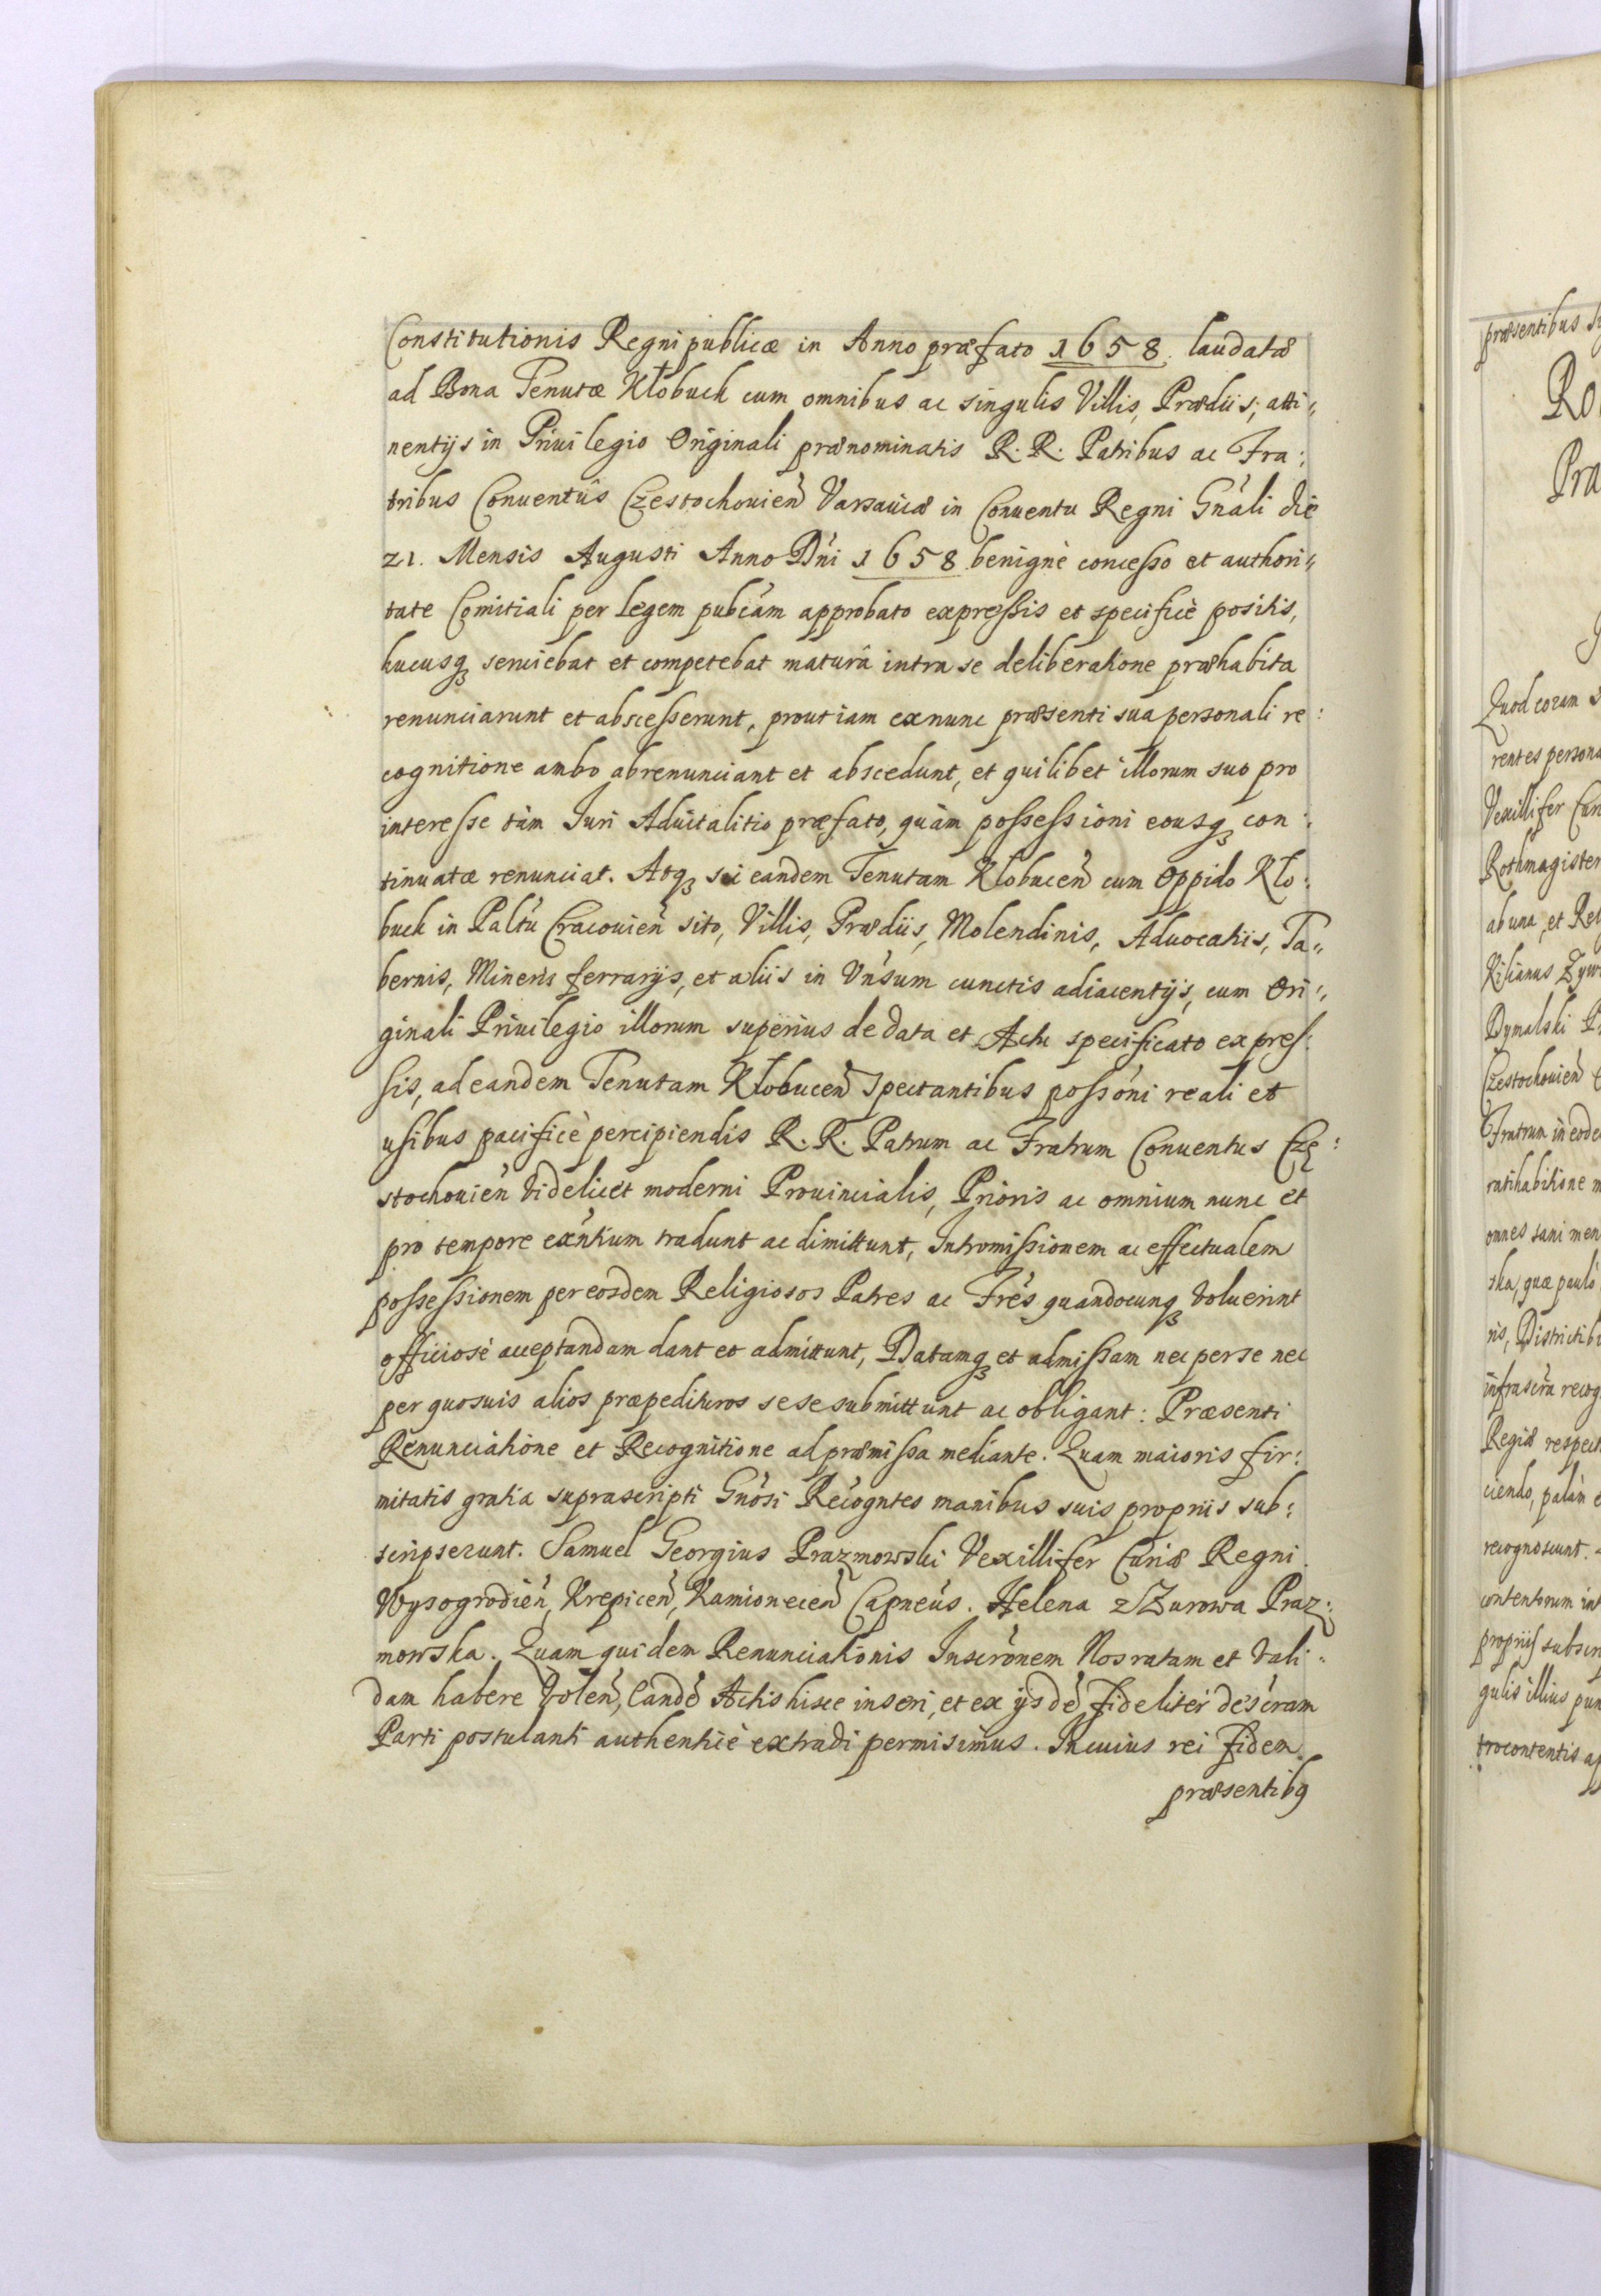 Constitutionis Regni publicæ in Anno præfato 1658. laudatæ
ad Bona Tenutæ Kłobuck cum omnibus ac singulis Villis, Prædiis, atti„
nentijs in Priuilegio Originali prænominatis R. R. Patribus ac Fra:
tribus Conuentûs Czestochouień Varsauiæ in Conuentu Regni Gńali die
21. Mensis Augusti Anno Dńi 1658 benignè concesso et authori„
tate Comitiali per legem pubćam approbato expressis et specificè positis,
hucusq3 seruiebat et competebat maturâ intra se deliberatione præhabita
renunciarunt et abscesserunt, prout iam exnunc præsenti sua personali re:
cognitione ambo abrenunciant et abscedunt, et quilibet illorum suo pro
interesse tàm Iuri Aduitalitio præfato, quàm possessioni eousq3 con:
tinuatæ renunciat. Atq3 sui eandem Tenutam Kłobuceń cum Oppido Kło:
buck in Palt́u Cracouień sito, Villis, Prædiis, Molendinis, Aduocatiis, Ta„
bernis, Mineris ferrarijs, et aliis in Vńsum cunctis adiacentijs, cum Ori:,
ginali Priuilegio illorum superius de data et Actu specificato expres:
sis, ad eandem Tenutam Kłobuceń spectantibus possóni reali et
usibus pacificè percipiendis R. R. Patrum ac Fratrum Conuentus Czę:
stochouień videlicet moderni Prouincialis, Prioris ac omnium nunc et
pro tempore exńtium tradunt ac dimittunt, Intromissionem ac effectualem
possessionem per eosdem Religiosos Patres ac Frés quandocunq3 voluerint
officiosè acceptandam dant et admittunt, Datamq3 et admissam nec per se nec
per quosuis alios præpedituros sese submittunt ac obligant: Præsenti
Renunciatione et Recognitione ad præmissa mediante. Quam maioris fir:
mitatis gratia suprascripti Gnósi Recógntes manibus suis propriis sub:
scripserunt. Samuel Georgius Prazmowski Vexillifer Curiæ Regni
Wysogrodień, Krepiceń, Kamioneceń Capneús. Helena z Zurowa Praz:
mowska. Quam quidem Renunciationis Inscrónem Nos ratam et vali„
dam habere voleń, eandé Actis hisce inseri, et ex ijsdé fideliter descŕam
Parti postulanti authenticè extradi permisimus. In cuius rei fidem
præsentibq
præsentibus
Quod coram
rentes persona
Vexillifer
Rothmagister
ab una, et
Kilianus
Dymalski
Czestochouień
Fratrum in
ratihabitione
omnes sani men
ska, quæ pauló
ris,
infrascŕa recog
Regiæ respect
ciendo, palàm
recognoscunt.
contentorum int
propriis
gulis illius pun